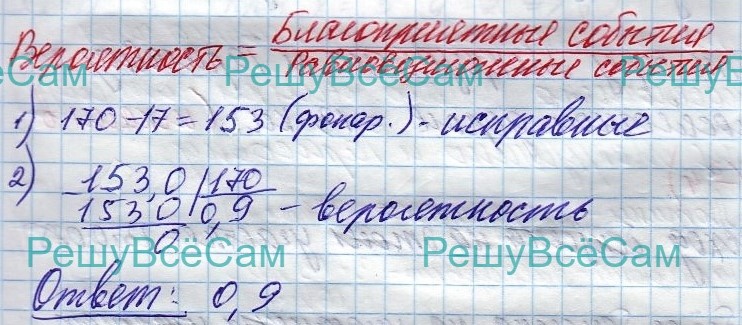 Вероятность = Благоприятные события
Равновозможные события
РешуВсёСам РешуВсёСам РешуВсёСам
1) 170-17=153 (фонар.) - исправные
2) 153,0 | 170
1530 | 0,9 - вероятность
0
РешуВсёСам РешуВсёСам
Ответ: 0,9